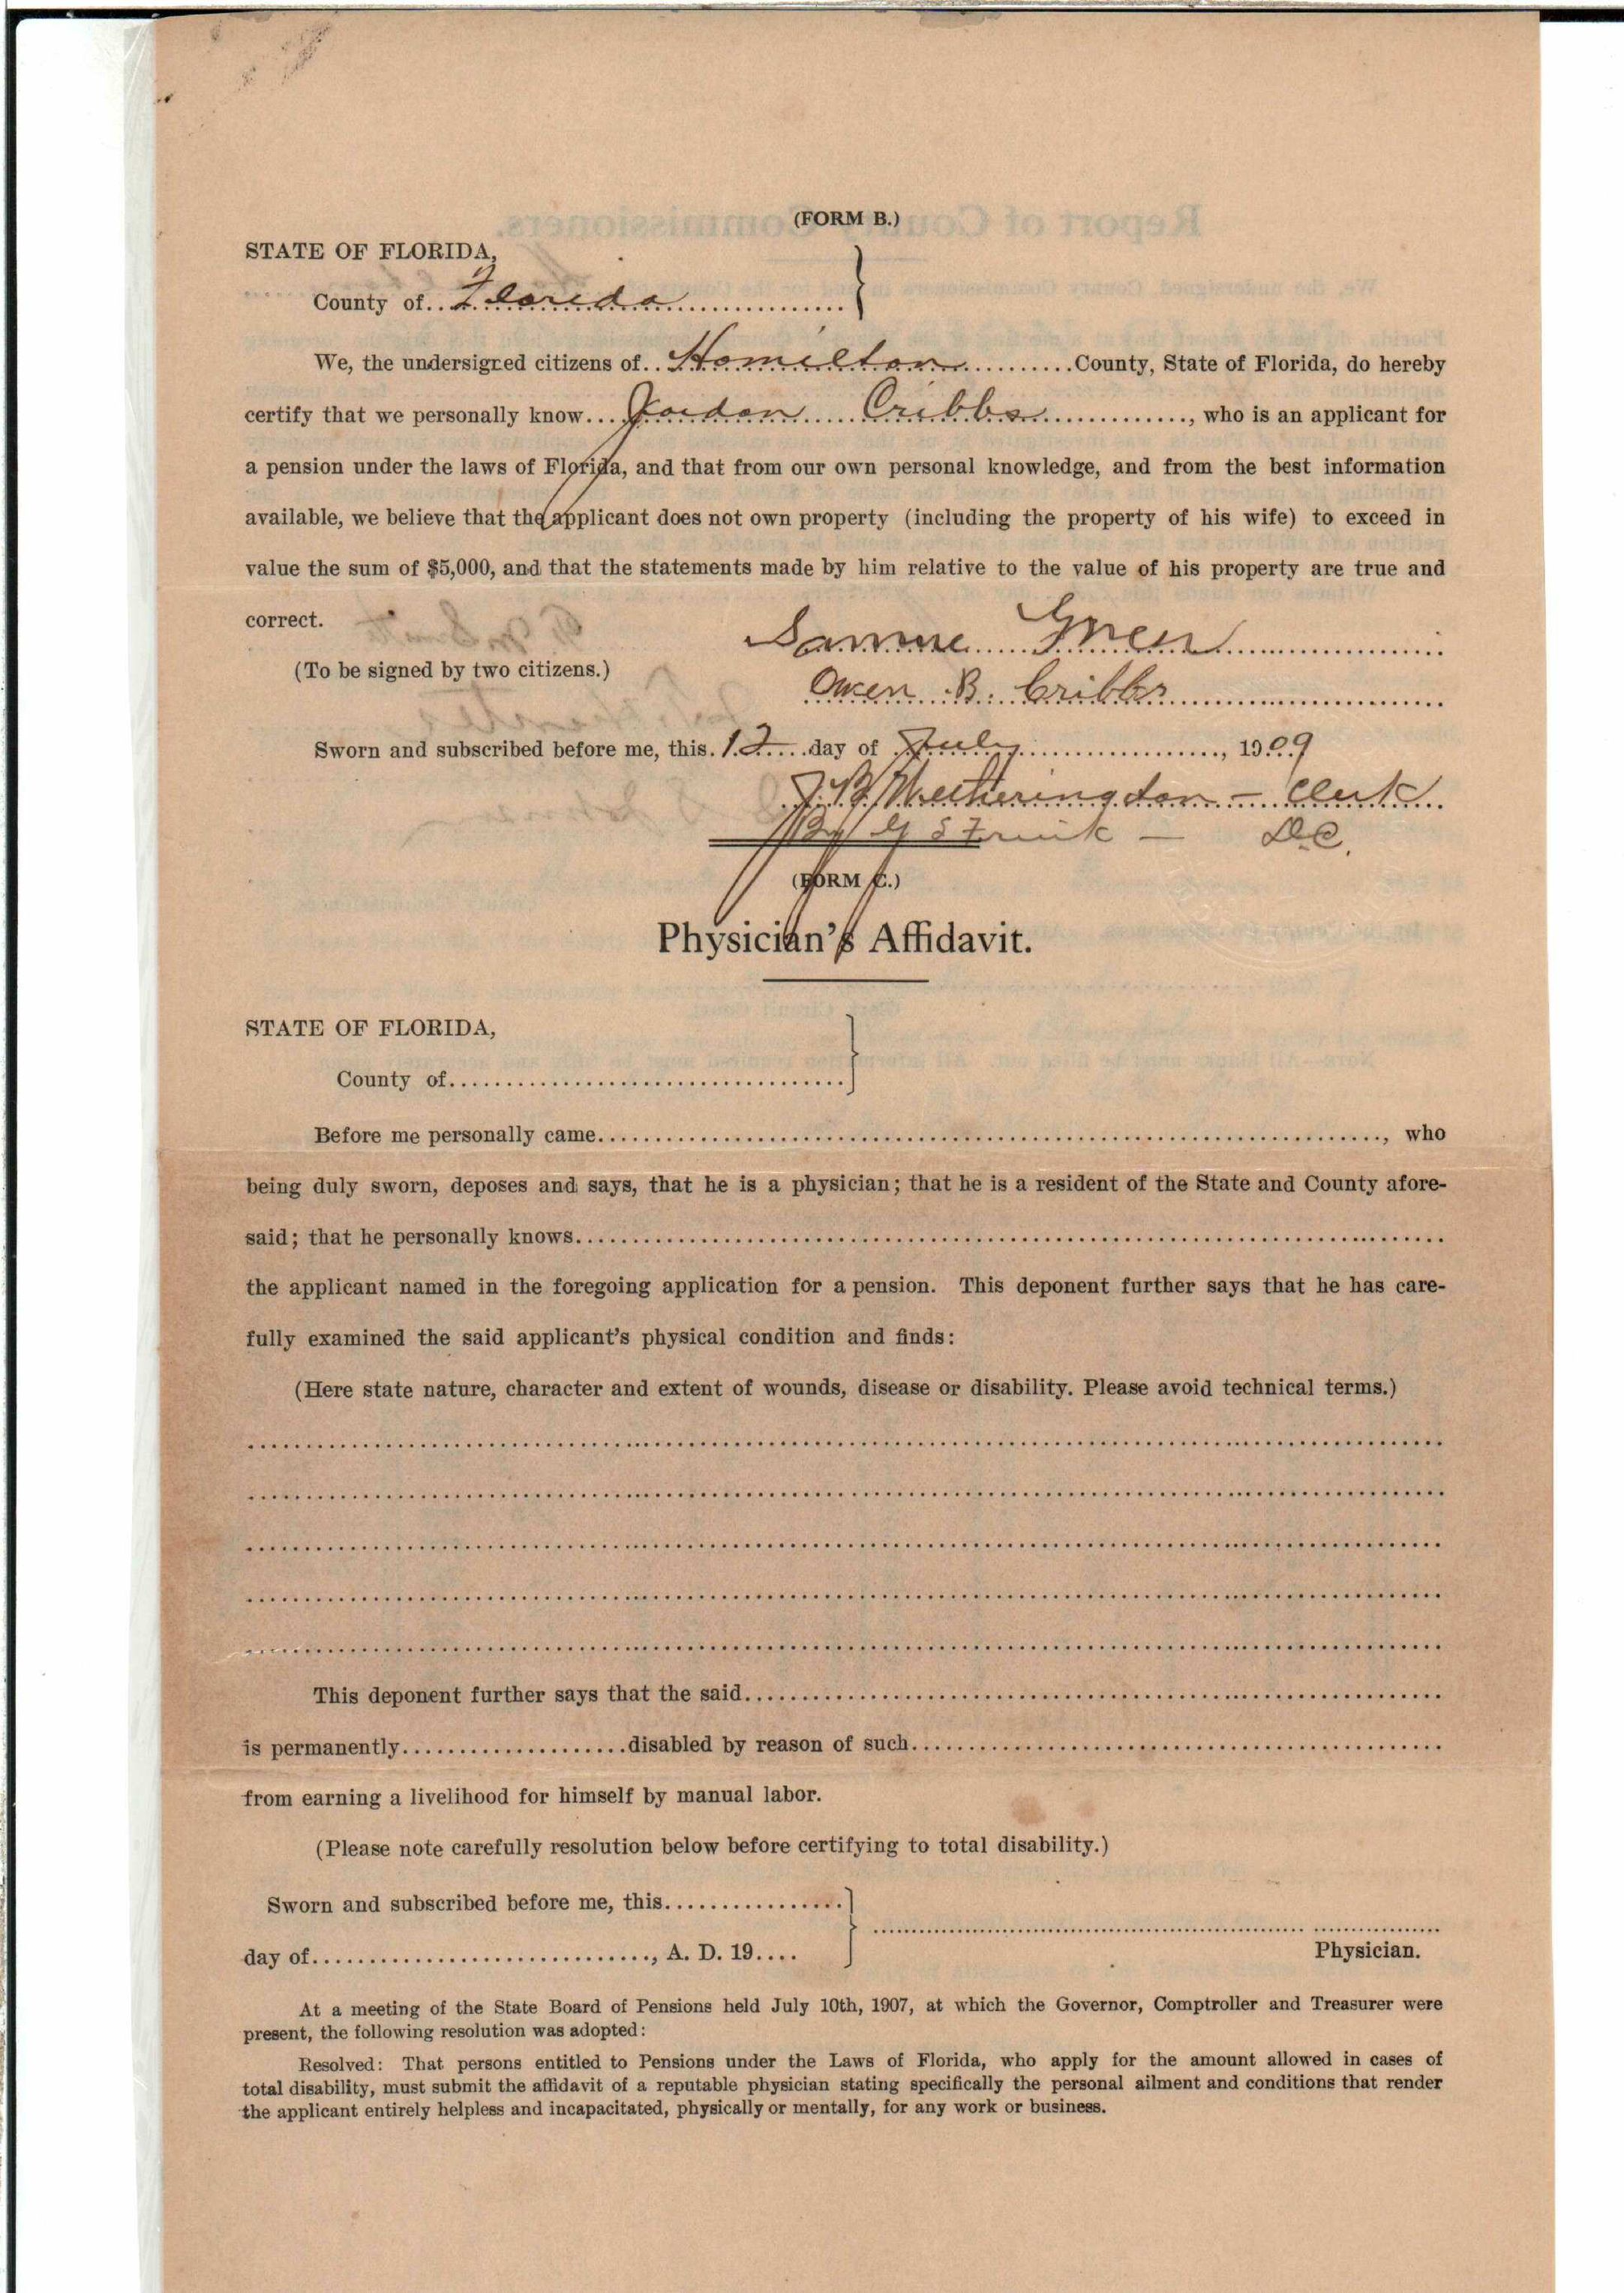 (FORM B.)
STATE OF FLORIDA,
County of Florida
We, the undersigned citizens of Hamilton County, State of Florida, do hereby
certify that we personally know Jordan Cribbs, who is an applicant for
a pension under the laws of Florida, and that from our own personal knowledge, and from the best information
available, we believe that the applicant does not own property (including the property of his wife) to exceed in
value the sum of $5,000, and that the statements made by him relative to the value of his property are true and
correct.
(To be signed by two citizens.)
Owen B. Cribbs
Sworn and subscribed before me, this 12 day of July, 1909
J. B. Wetherington - Clerk
By G S Frink - D.C.
(FORM C.)
Physician's Affidavit.
STATE OF FLORIDA,
County of
Before me personally came, who
being duly sworn, deposes and says, that he is a physician; that he is a resident of the State and County afore-
said; that he personally knows
the applicant named in the foregoing application for a pension. This deponent further says that he has care-
fully examined the said applicant's physical condition and finds:
(Here state nature, character and extent of wounds, disease or disability. Please avoid technical terms.)
This deponent further says that the said
is permanently disabled by reason of such
from earning a livelihood for himself by manual labor.
(Please note carefully resolution below before certifying to total disability.)
Sworn and subscribed before me, this
day of, A. D. 19
Physician.
At a meeting of the State Board of Pensions held July 10th, 1907, at which the Governor, Comptroller and Treasurer were
present, the following resolution was adopted:
Resolved: That persons entitled to Pensions under the Laws of Florida, who apply for the amount allowed in cases of
total disability, must submit the affidavit of a reputable physician stating specifically the personal ailment and conditions that render
the applicant entirely helpless and incapacitated, physically or mentally, for any work or business.